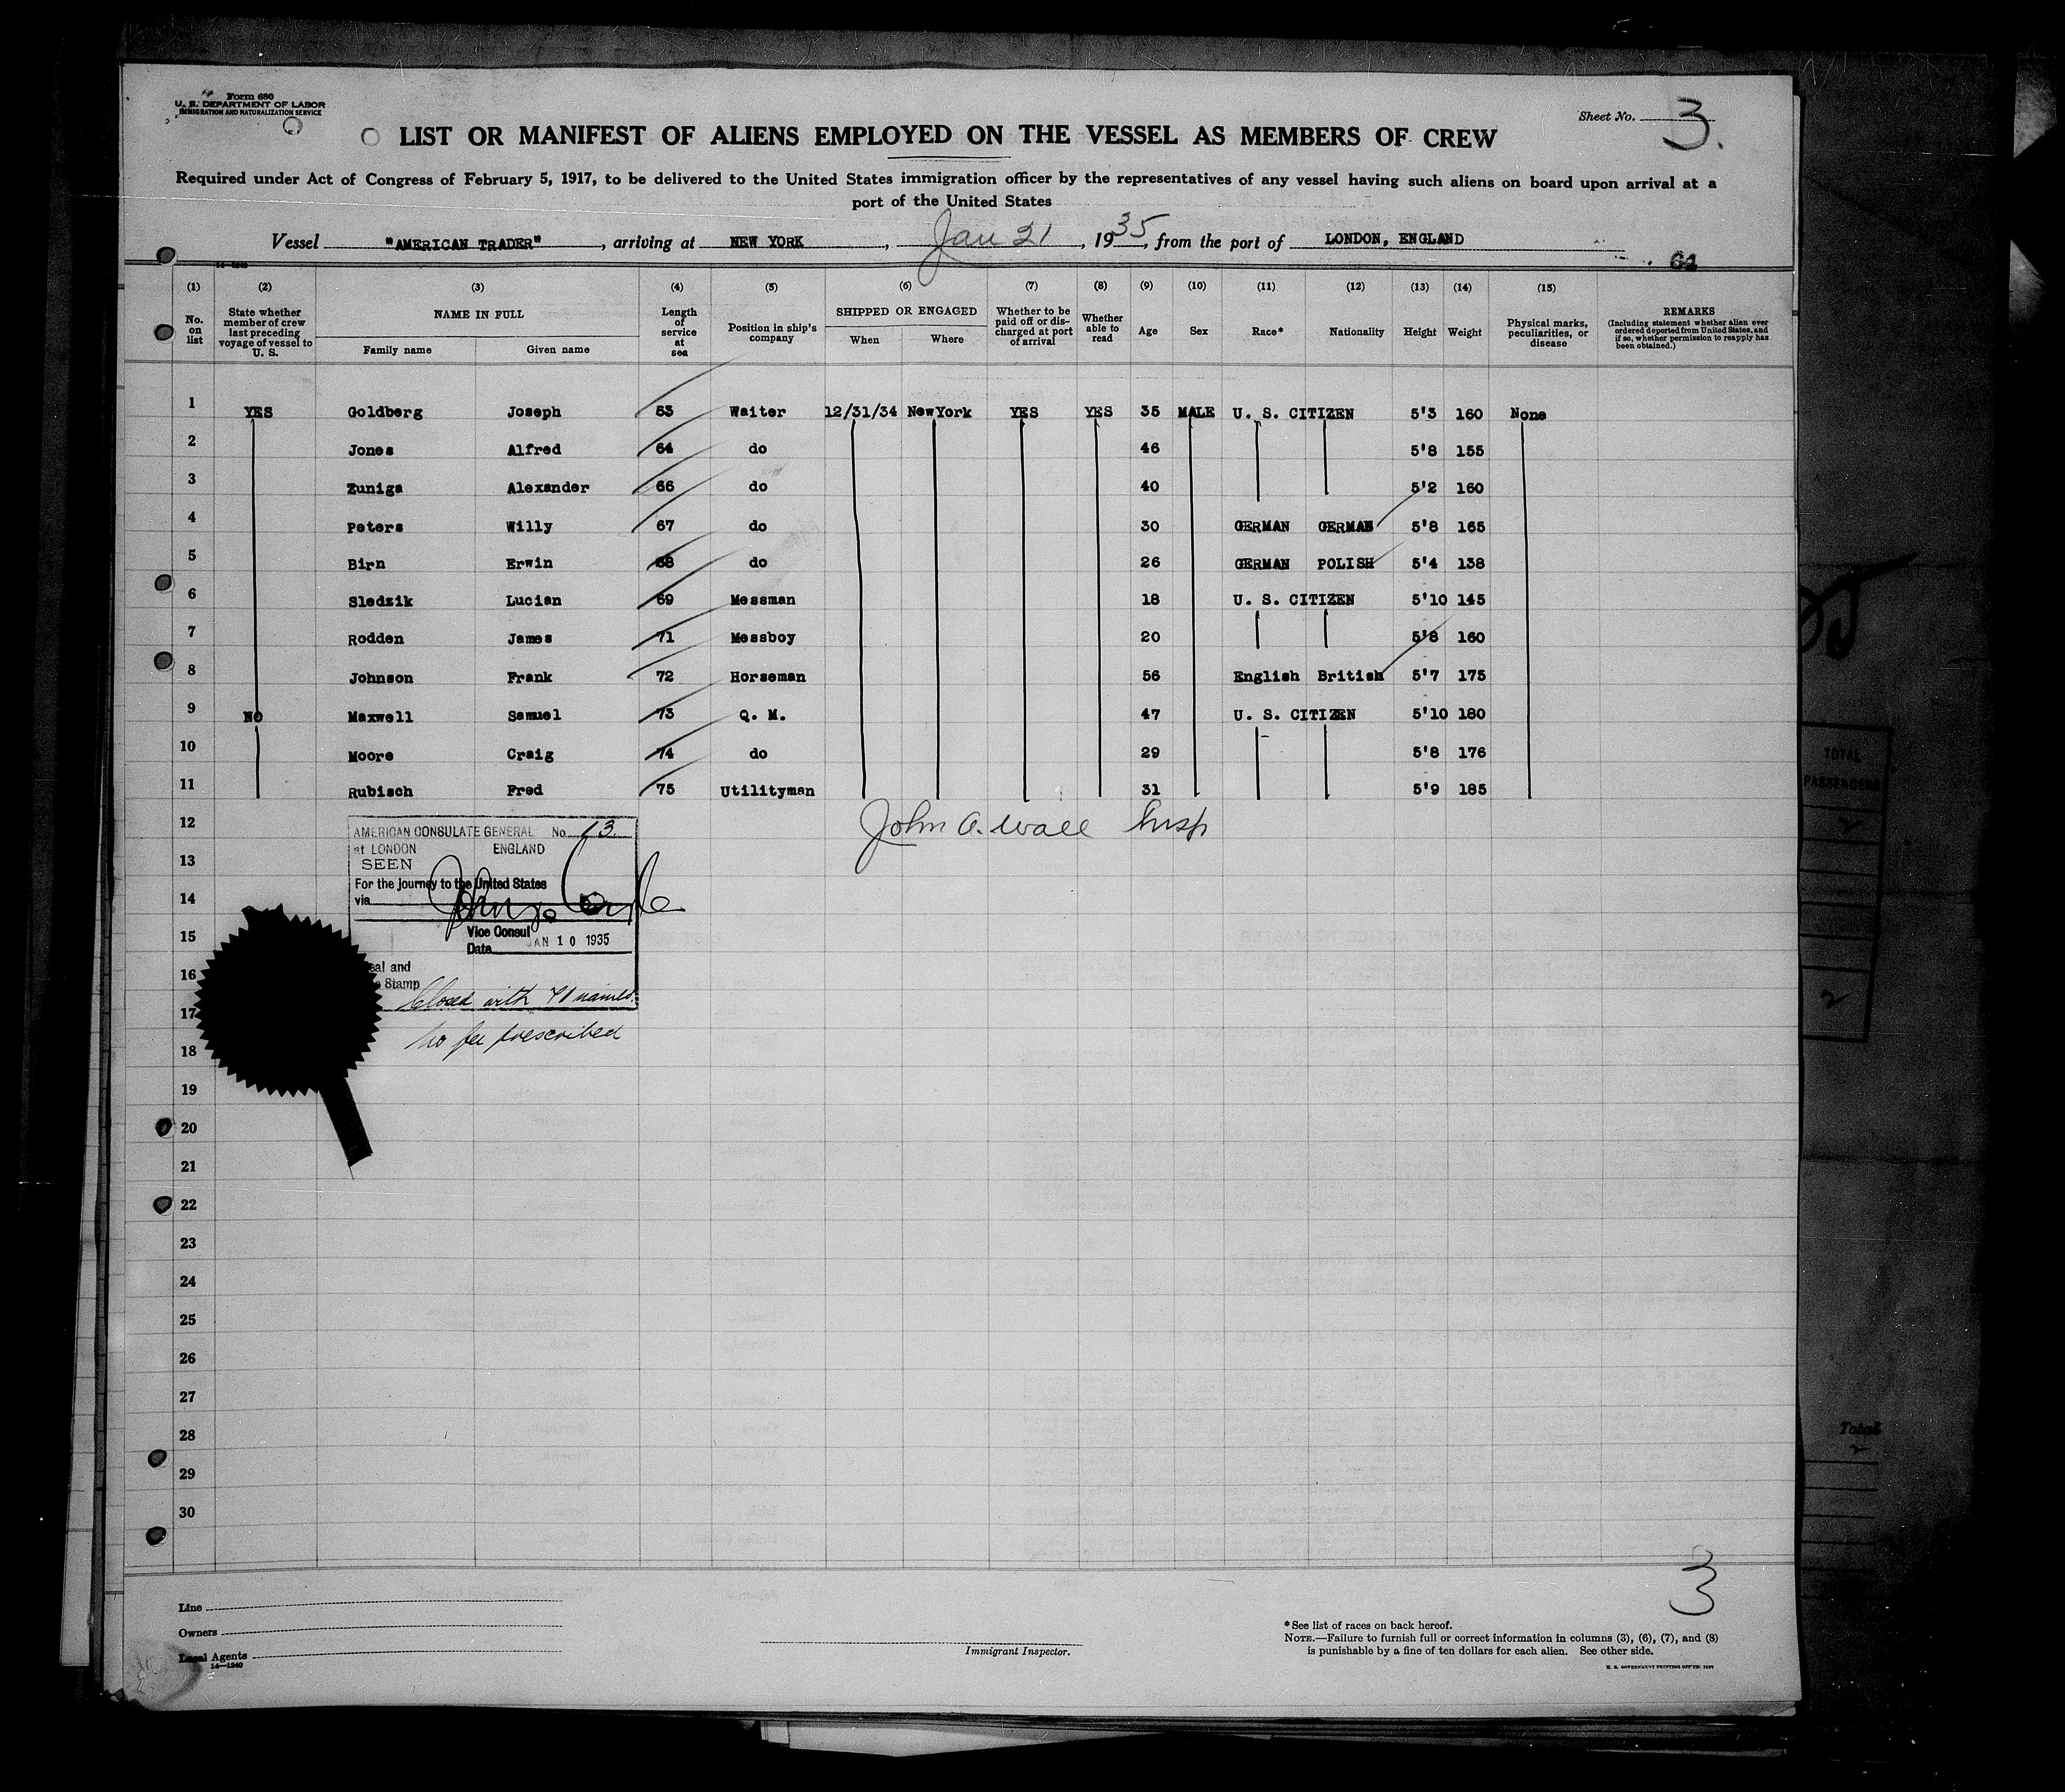 Form 680
U. S. DEPARTMENT OF LABOR
IMMIGRATION AND NATURALIZATION SERVICE
Sheet No. 3.
LIST OR MANIFEST OF ALIENS EMPLOYED ON THE VESSEL AS MEMBERS OF CREW
Required under Act of Congress of February 5, 1917, to be delivered to the United States immigration officer by the representatives of any vessel having such aliens on board upon arrival at a
port of the United States
Vessel "AMERICAN TRADER", arriving at NEW YORK, Jan 21, 1935, from the port of LONDON, ENGLAND
64
(1) (2) (3) (4) (5) (6) (7) (8) (9) (10) (11) (12) (13) (14) (15)
No. on list
State whether member of crew last preceding voyage of vessel to U. S.
NAME IN FULL
Family name
Given name
Length of service at sea
Position in ship's company
SHIPPED OR ENGAGED
When
Where
Whether to be paid off or discharged at port of arrival
Whether able to read
Age
Sex
Race*
Nationality
Height
Weight
Physical marks, peculiarities, or disease
REMARKS
(Including statement whether alien ever ordered deported from United States, and if so, whether permission to reapply has been obtained.)
1 YES Goldberg Joseph 53 Waiter 12/31/34 NewYork YES YES 35 MALE U. S. CITIZEN 5'3 160 None
2 Jones Alfred 64 do 46 5'8 155
3 Zuniga Alexander 66 do 40 5'2 160
4 Peters Willy 67 do 30 GERMAN GERMAN 5'8 165
5 Birn Erwin 68 do 26 GERMAN POLISH 5'4 138
6 Sledzik Lucian 69 Messman 18 U. S. CITIZEN 5'10 145
7 Rodden James 71 Messboy 20 5'8 160
8 Johnson Frank 72 Horseman 56 English British 5'7 175
9 NO Maxwell Samuel 73 Q. M. 47 U. S. CITIZEN 5'10 180
10 Moore Craig 74 do 29 5'8 176
11 Rubisch Fred 75 Utilityman 31 5'9 185
12 John A. Wall Insp
AMERICAN CONSULATE GENERAL No. 13
at LONDON ENGLAND
SEEN
For the journey to the United States
via
Vice Consul
Date JAN 10 1935
Seal and
Stamp
Closed with 71 names.
No fee prescribed
13
14
15
16
17
18
19
20
21
22
23
24
25
26
27
28
29
30
3
Line
Owners
Local Agents
14—1240
Immigrant Inspector.
*See list of races on back hereof.
NOTE.—Failure to furnish full or correct information in columns (3), (6), (7), and (8)
is punishable by a fine of ten dollars for each alien. See other side.
TOTAL
PASSENGERS
2
2
Total
2